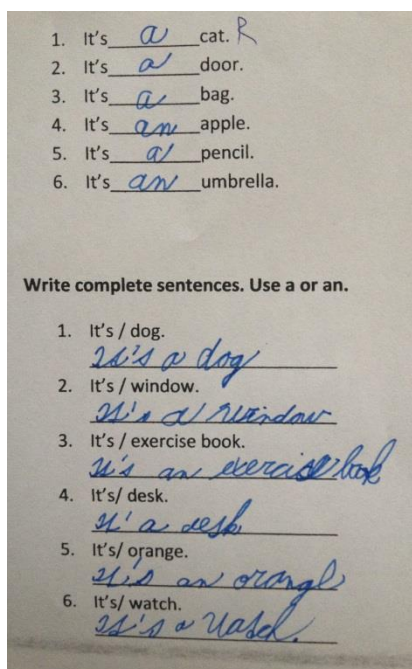 1. It's a cat. R
2. It's a door.
3. It's a bag.
4. It's an apple.
5. It's a pencil.
6. It's an umbrella.
Write complete sentences. Use a or an.
1. It's / dog.
It's a dog
2. It's / window.
It's a window
3. It's / exercise book.
It's an exercise book
4. It's/ desk.
It' a desk
5. It's/ orange.
It's an orange
6. It's/ watch.
It's a